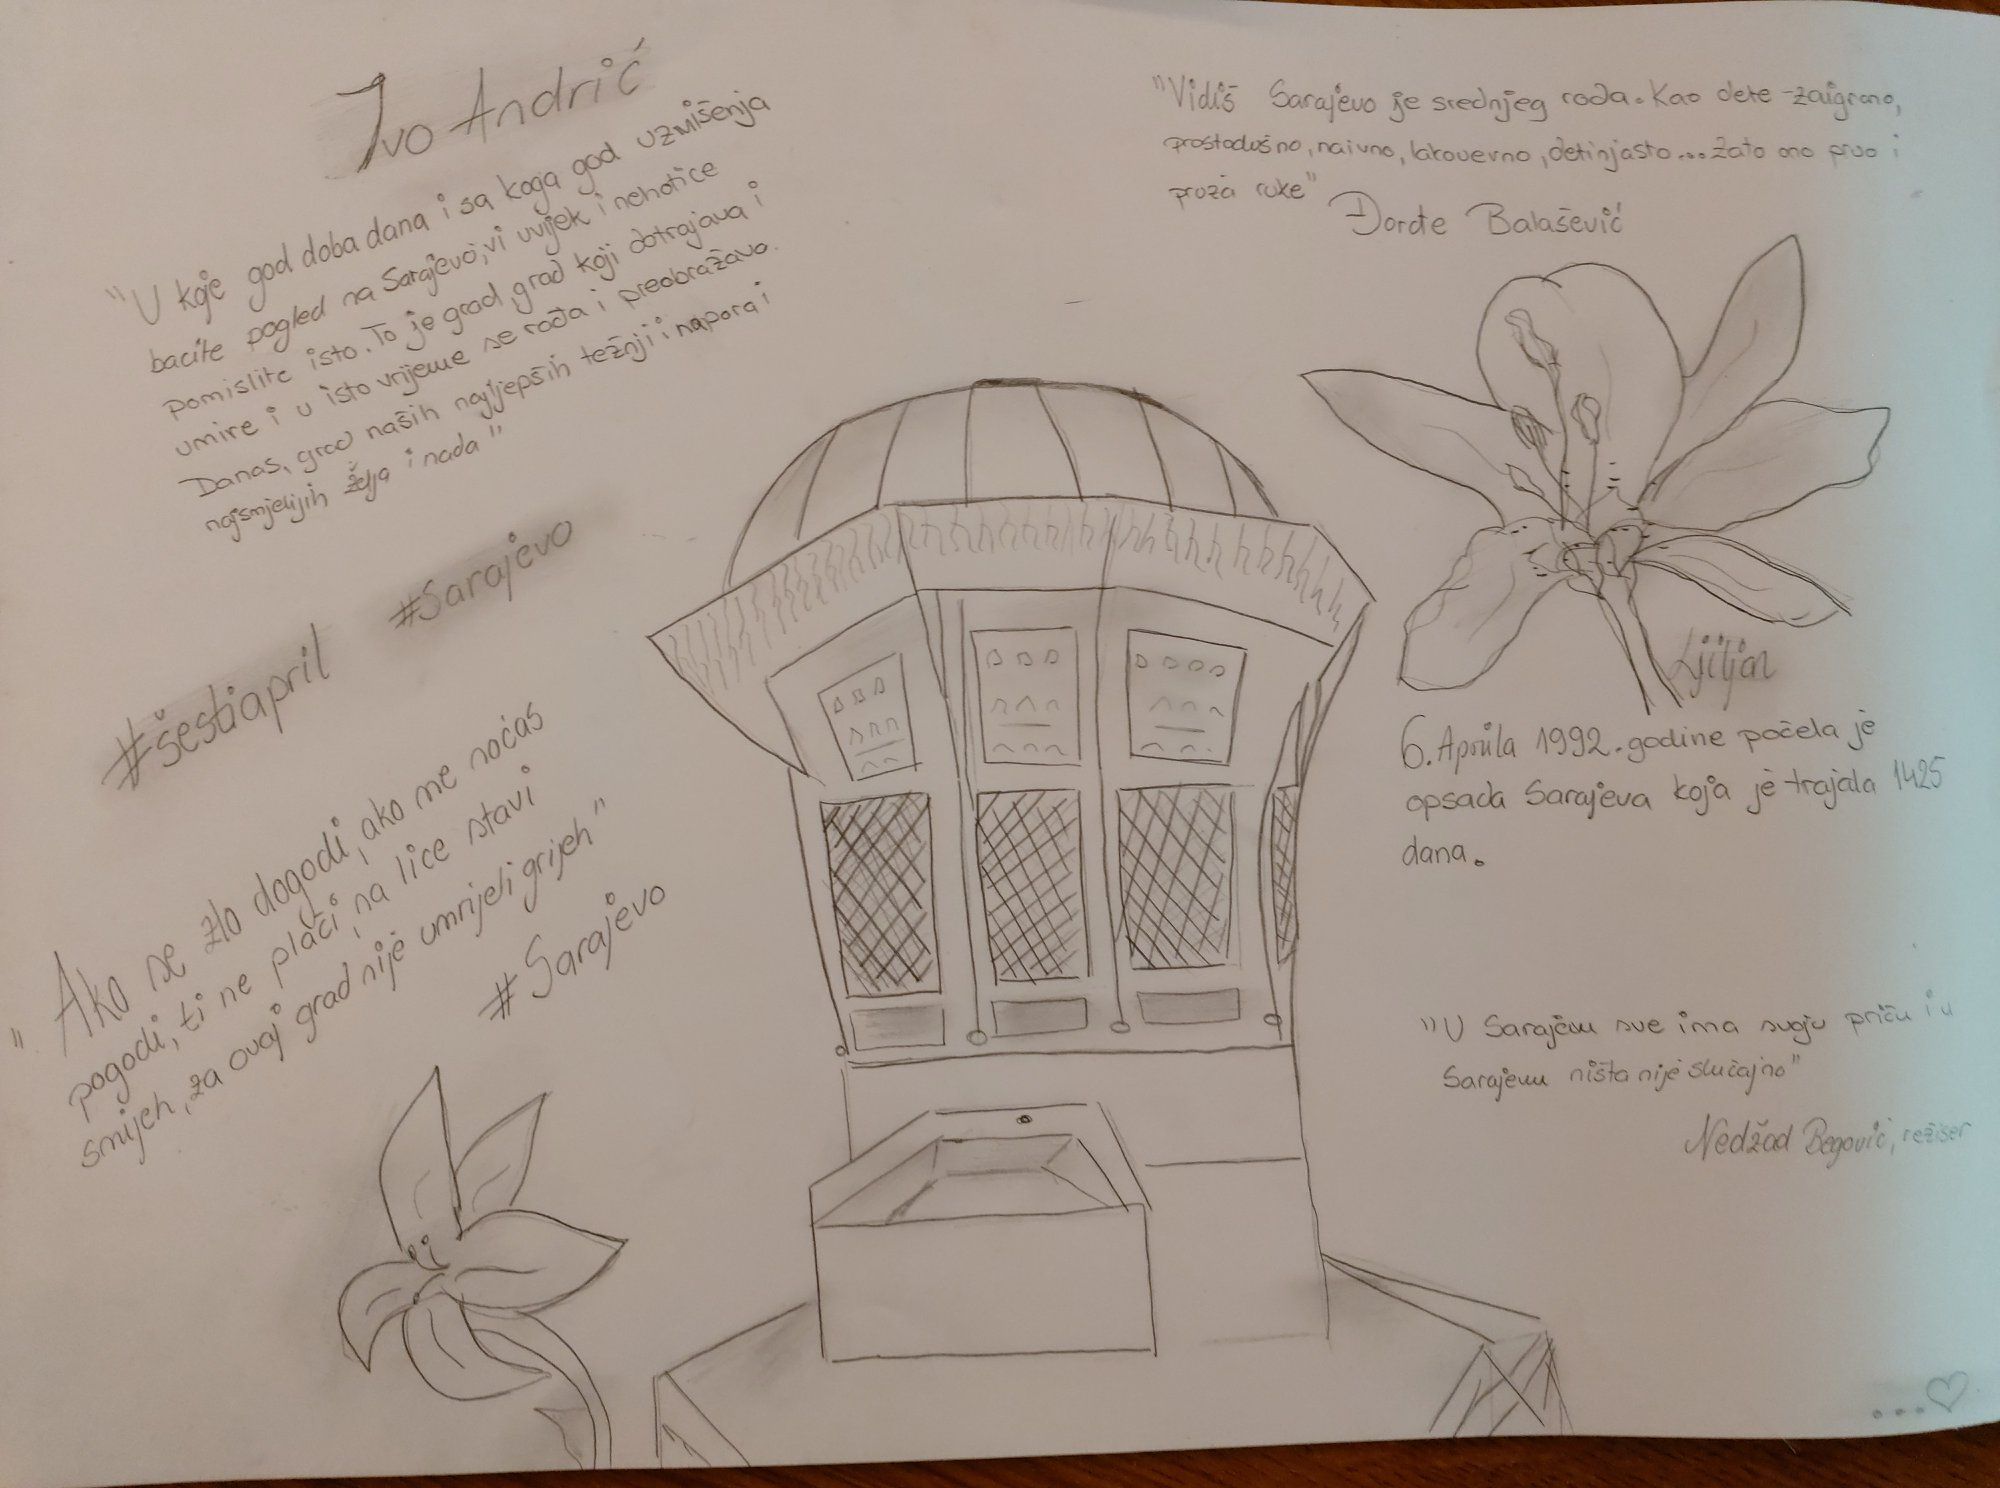 Ivo Andrić
"U koje god doba dana i sa koga god uzvišenja
bacite pogled na Sarajevo, vi uvijek i nehotice
pomislite isto. To je grad, grad koji dotrajava i
umire i u isto vrijeme se rađa i preobražava.
Danas, grad naših najljepših težnji i napora i
najsmjelijih želja i nada"
#šestiapril #Sarajevo
"Ako se zlo dogodi, ako me noćas
pogodi, ti ne plači, na lice stavi
smijeh, za ovaj grad nije umrijeti grijeh"
#Sarajevo
"Vidiš Sarajevo je srednjeg roda. Kao dete - zaigrano,
prostodušno, naivno, lakoverno, detinjasto... Zato ono prvo i
pruža ruke"
Đorđe Balašević
Ljiljan
6. Aprila 1992. godine počela je
opsada Sarajeva koja je trajala 1425
dana.
"U Sarajevu sve ima svoju priču i u
Sarajevu ništa nije slučajno"
Nedžad Begović, režiser
...♡